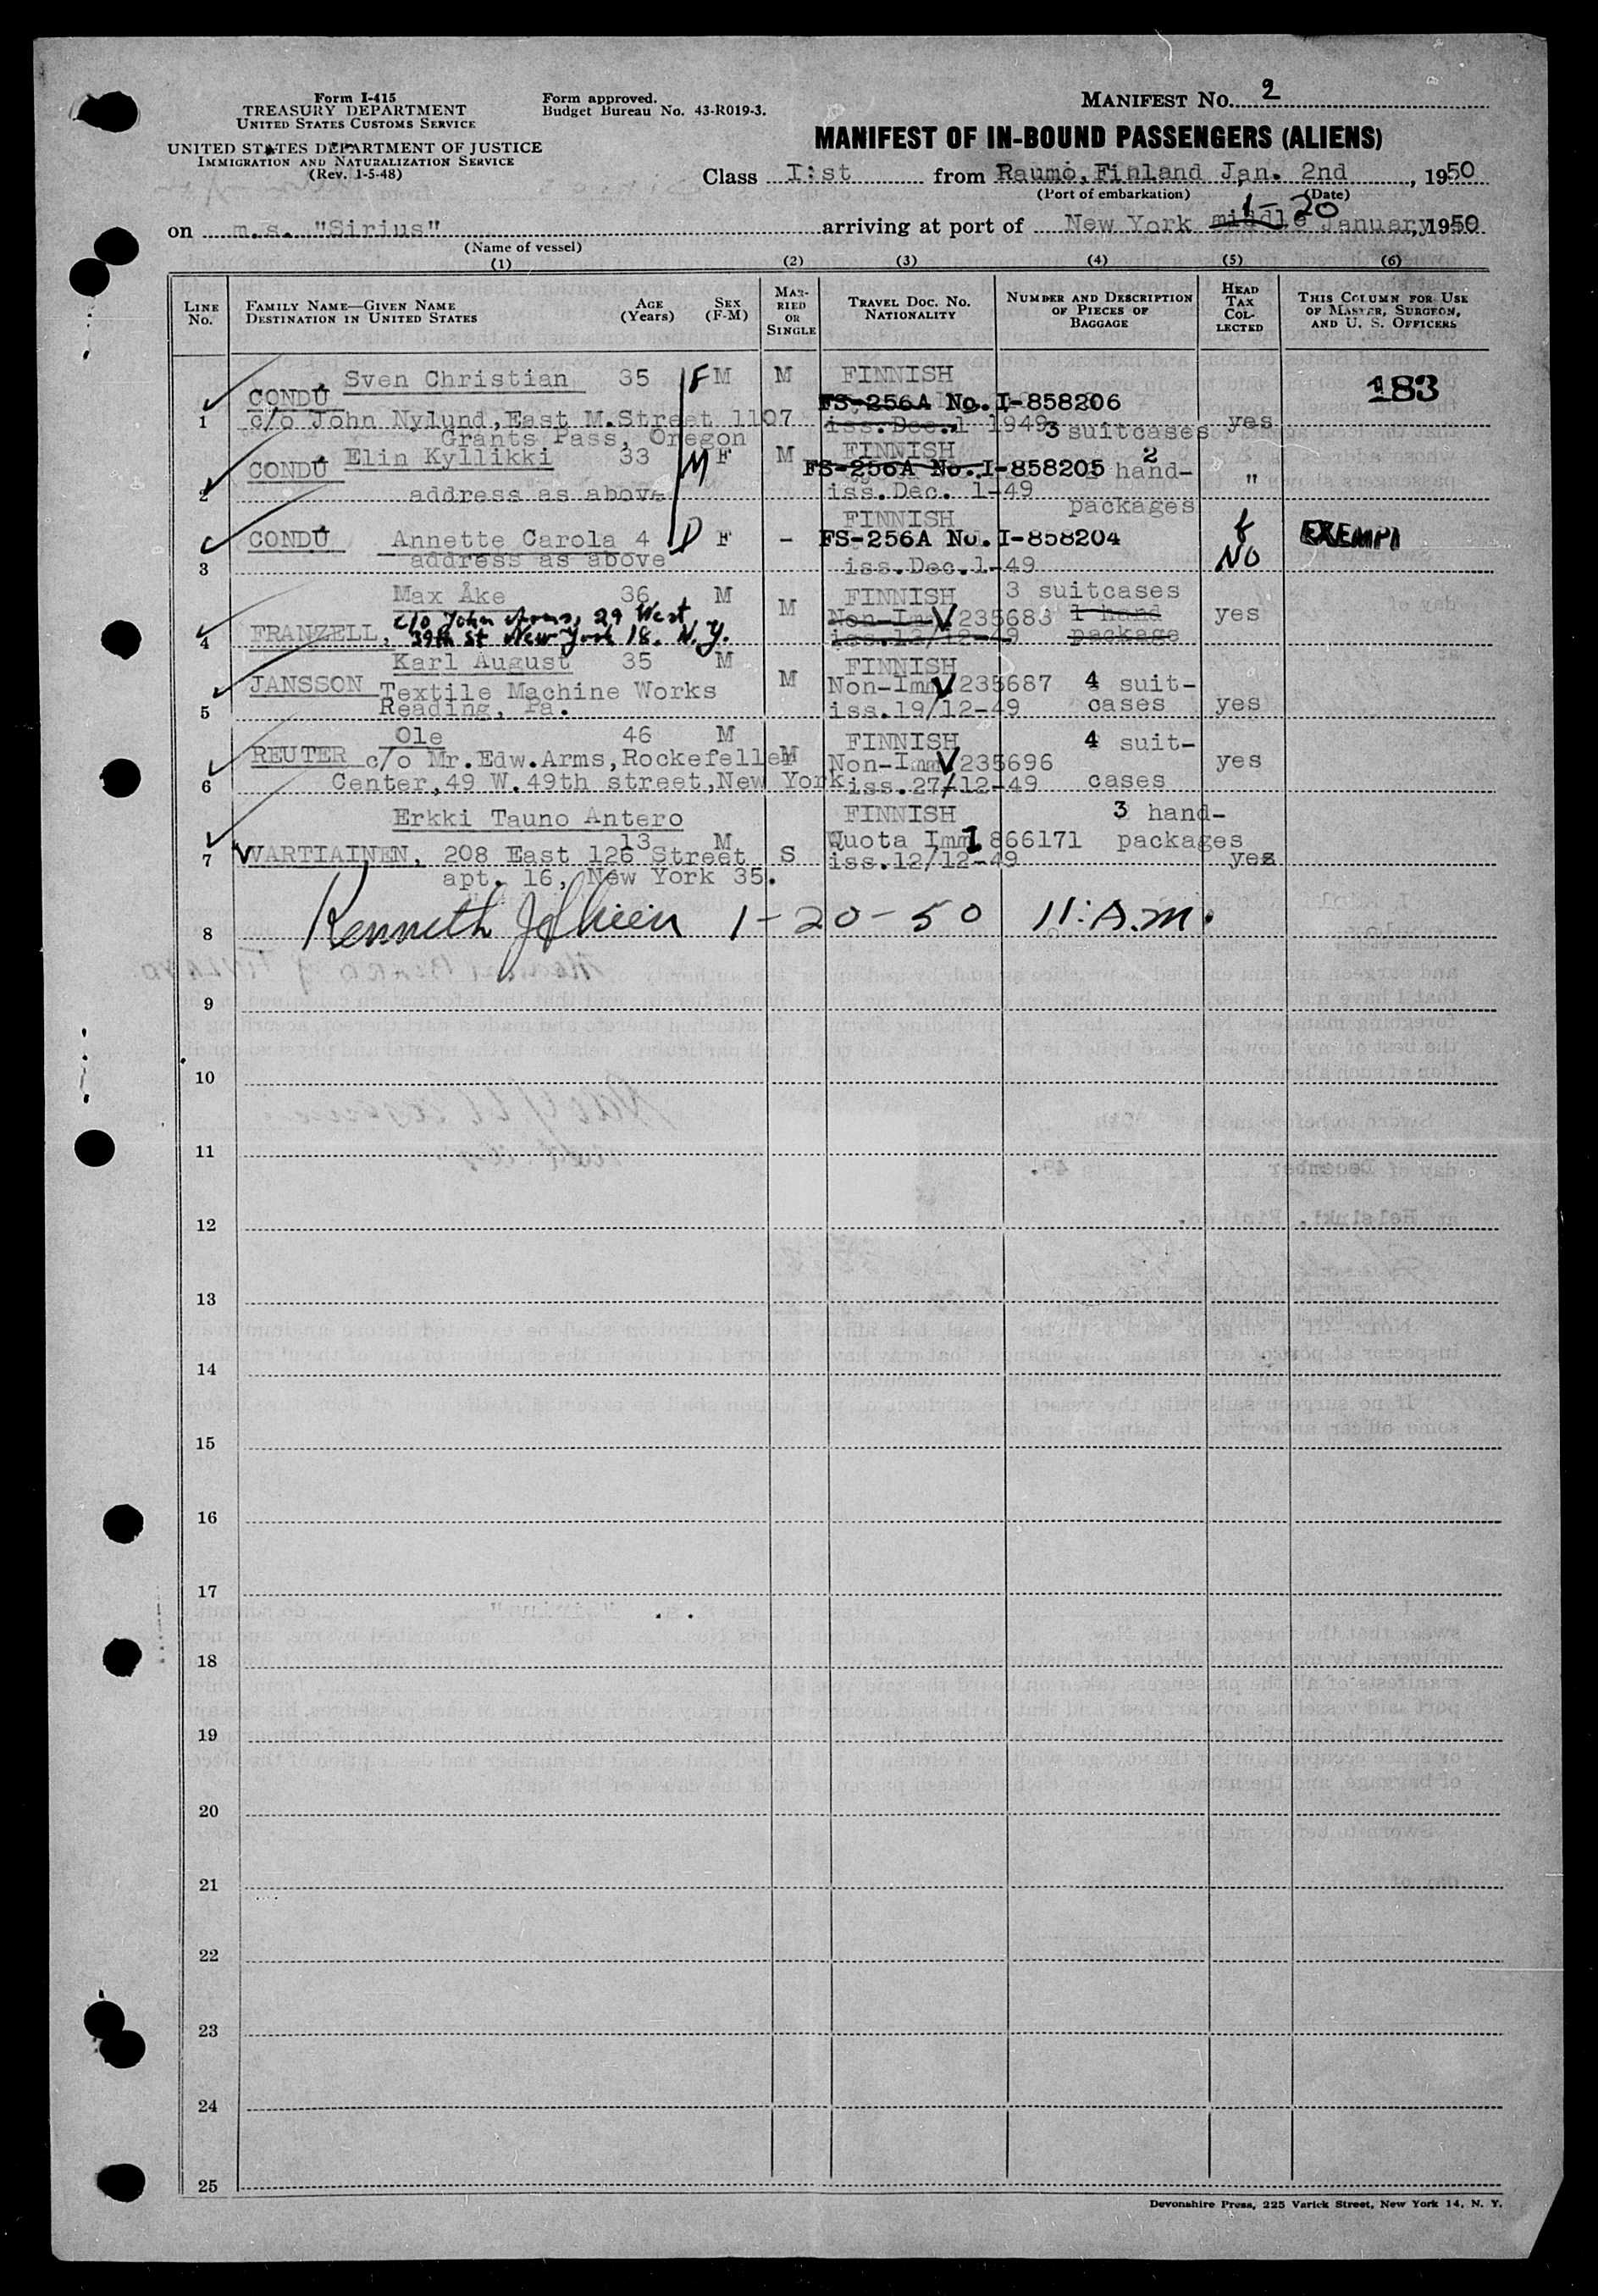 Form I-415
TREASURY DEPARTMENT
UNITED STATES CUSTOMS SERVICE
UNITED STATES DEPARTMENT OF JUSTICE
IMMIGRATION AND NATURALIZATION SERVICE
(Rev. 1-5-48)
Form approved.
Budget Bureau No. 43-R019-3.
MANIFEST NO. 2
MANIFEST OF IN-BOUND PASSENGERS (ALIENS)
Class I:st from Raumo, Finland Jan. 2nd, 1950
(Port of embarkation) (Date)
1-20
on m.s. "Sirius" arriving at port of New York middle January, 1950
(Name of vessel)
(1) (2) (3) (4) (5) (6)
LINE NO.
FAMILY NAME—GIVEN NAME
DESTINATION IN UNITED STATES
AGE (Years)
SEX (F-M)
MARRIED OR SINGLE
TRAVEL DOC. NO.
NATIONALITY
NUMBER AND DESCRIPTION OF PIECES OF BAGGAGE
HEAD TAX COLLECTED
THIS COLUMN FOR USE OF MASTER, SURGEON, AND U. S. OFFICERS
Sven Christian 35 F M M FINNISH 183
CONDU FS-256A No. I-858206
1 c/o John Nylund, East M. Street 1107 iss. Dec. 1 1949 3 suitcases yes
Grants Pass, Oregon
CONDU Elin Kyllikki 33 M F M FINNISH 2
FS-256A No. I-858205 hand-
2 address as above iss. Dec. 1-49 packages "
FINNISH
CONDU Annette Carola 4 D F - FS-256A No. I-858204 EXEMPT
3 address as above iss. Dec. 1-49 NO
Max Åke 36 M M FINNISH 3 suitcases
c/o John Arms, 29 West Non-Imm V 235683 1 hand yes
4 FRANZELL, 39th St New York 18. N.Y. iss. 13/12-49 package
Karl August 35 M FINNISH
JANSSON Textile Machine Works M Non-Imm V 235687 4 suit-
5 Reading, Pa. iss. 19/12-49 cases yes
Ole 46 M FINNISH 4 suit-
REUTER c/o Mr. Edw. Arms, Rockefeller M Non-Imm V 235696 yes
6 Center, 49 W. 49th street, New York iss. 27/12-49 cases
Erkki Tauno Antero FINNISH 3 hand-
13 M Quota Imm I 866171 packages
7 WARTIAINEN, 208 East 126 Street S iss. 12/12-49 yes
apt. 16, New York 35.
8 Kenneth 1-20-50 11: A.M.
9
10
11
12
13
14
15
16
17
18
19
20
21
22
23
24
25
Devonshire Press, 225 Varick Street, New York 14, N. Y.